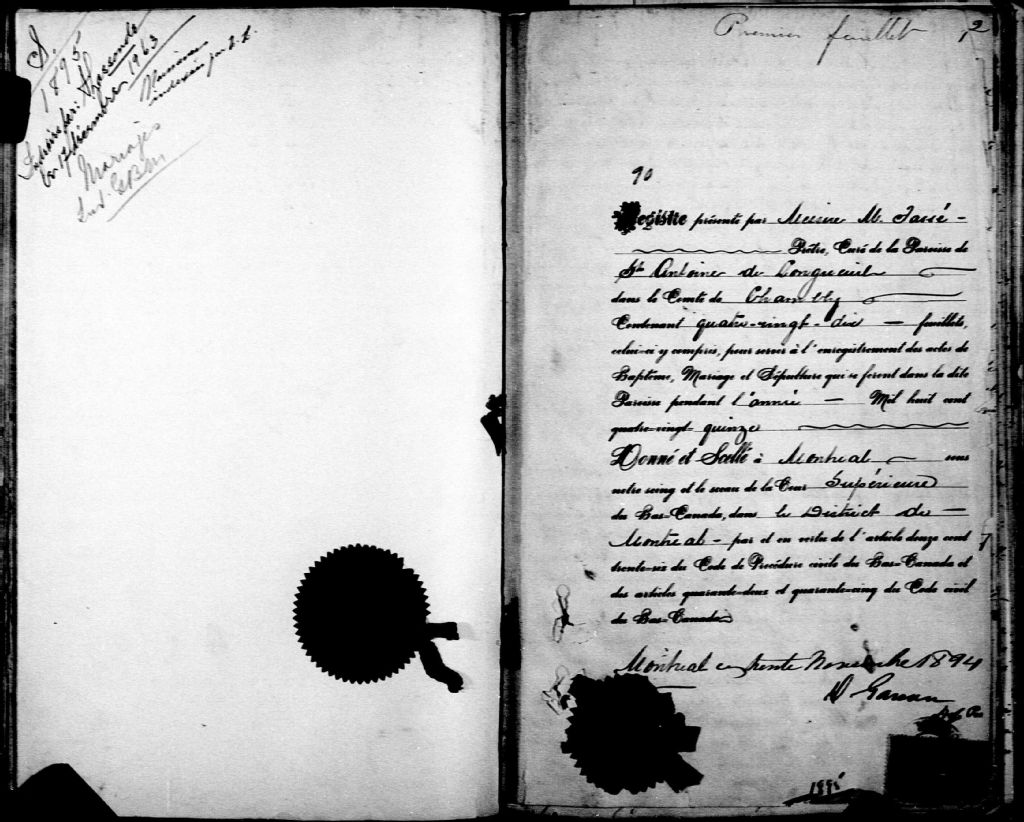 S.
1895
le 17 décembre 1963
Mariages
Ind.
Premier feuillet
2
90
Registre présenté par Messire M. Tassé
Prêtre, Curé de la Paroisse de
St Antoine de Longueuil
dans le Comté de Chambly
Contenant quatre-vingt-dix feuillets,
celui-ci y compris, pour servir à l'enregistrement des actes de
Baptême, Mariage et Sépulture qui se feront dans la dite
Paroisse pendant l'année Mil huit cent
quatre-vingt quinze
Donné et Scellé à Montreal sous
notre seing et le sceau de la Cour Supérieure
du Bas-Canada, dans le District de
Montréal - par et en vertu de l'article douze cent
trente-six du Code de Procédure civile du Bas-Canada et
des articles quarante-deux et quarante-cinq du Code civil
du Bas-Canada
Montreal ce trente Novembre 1894
1895